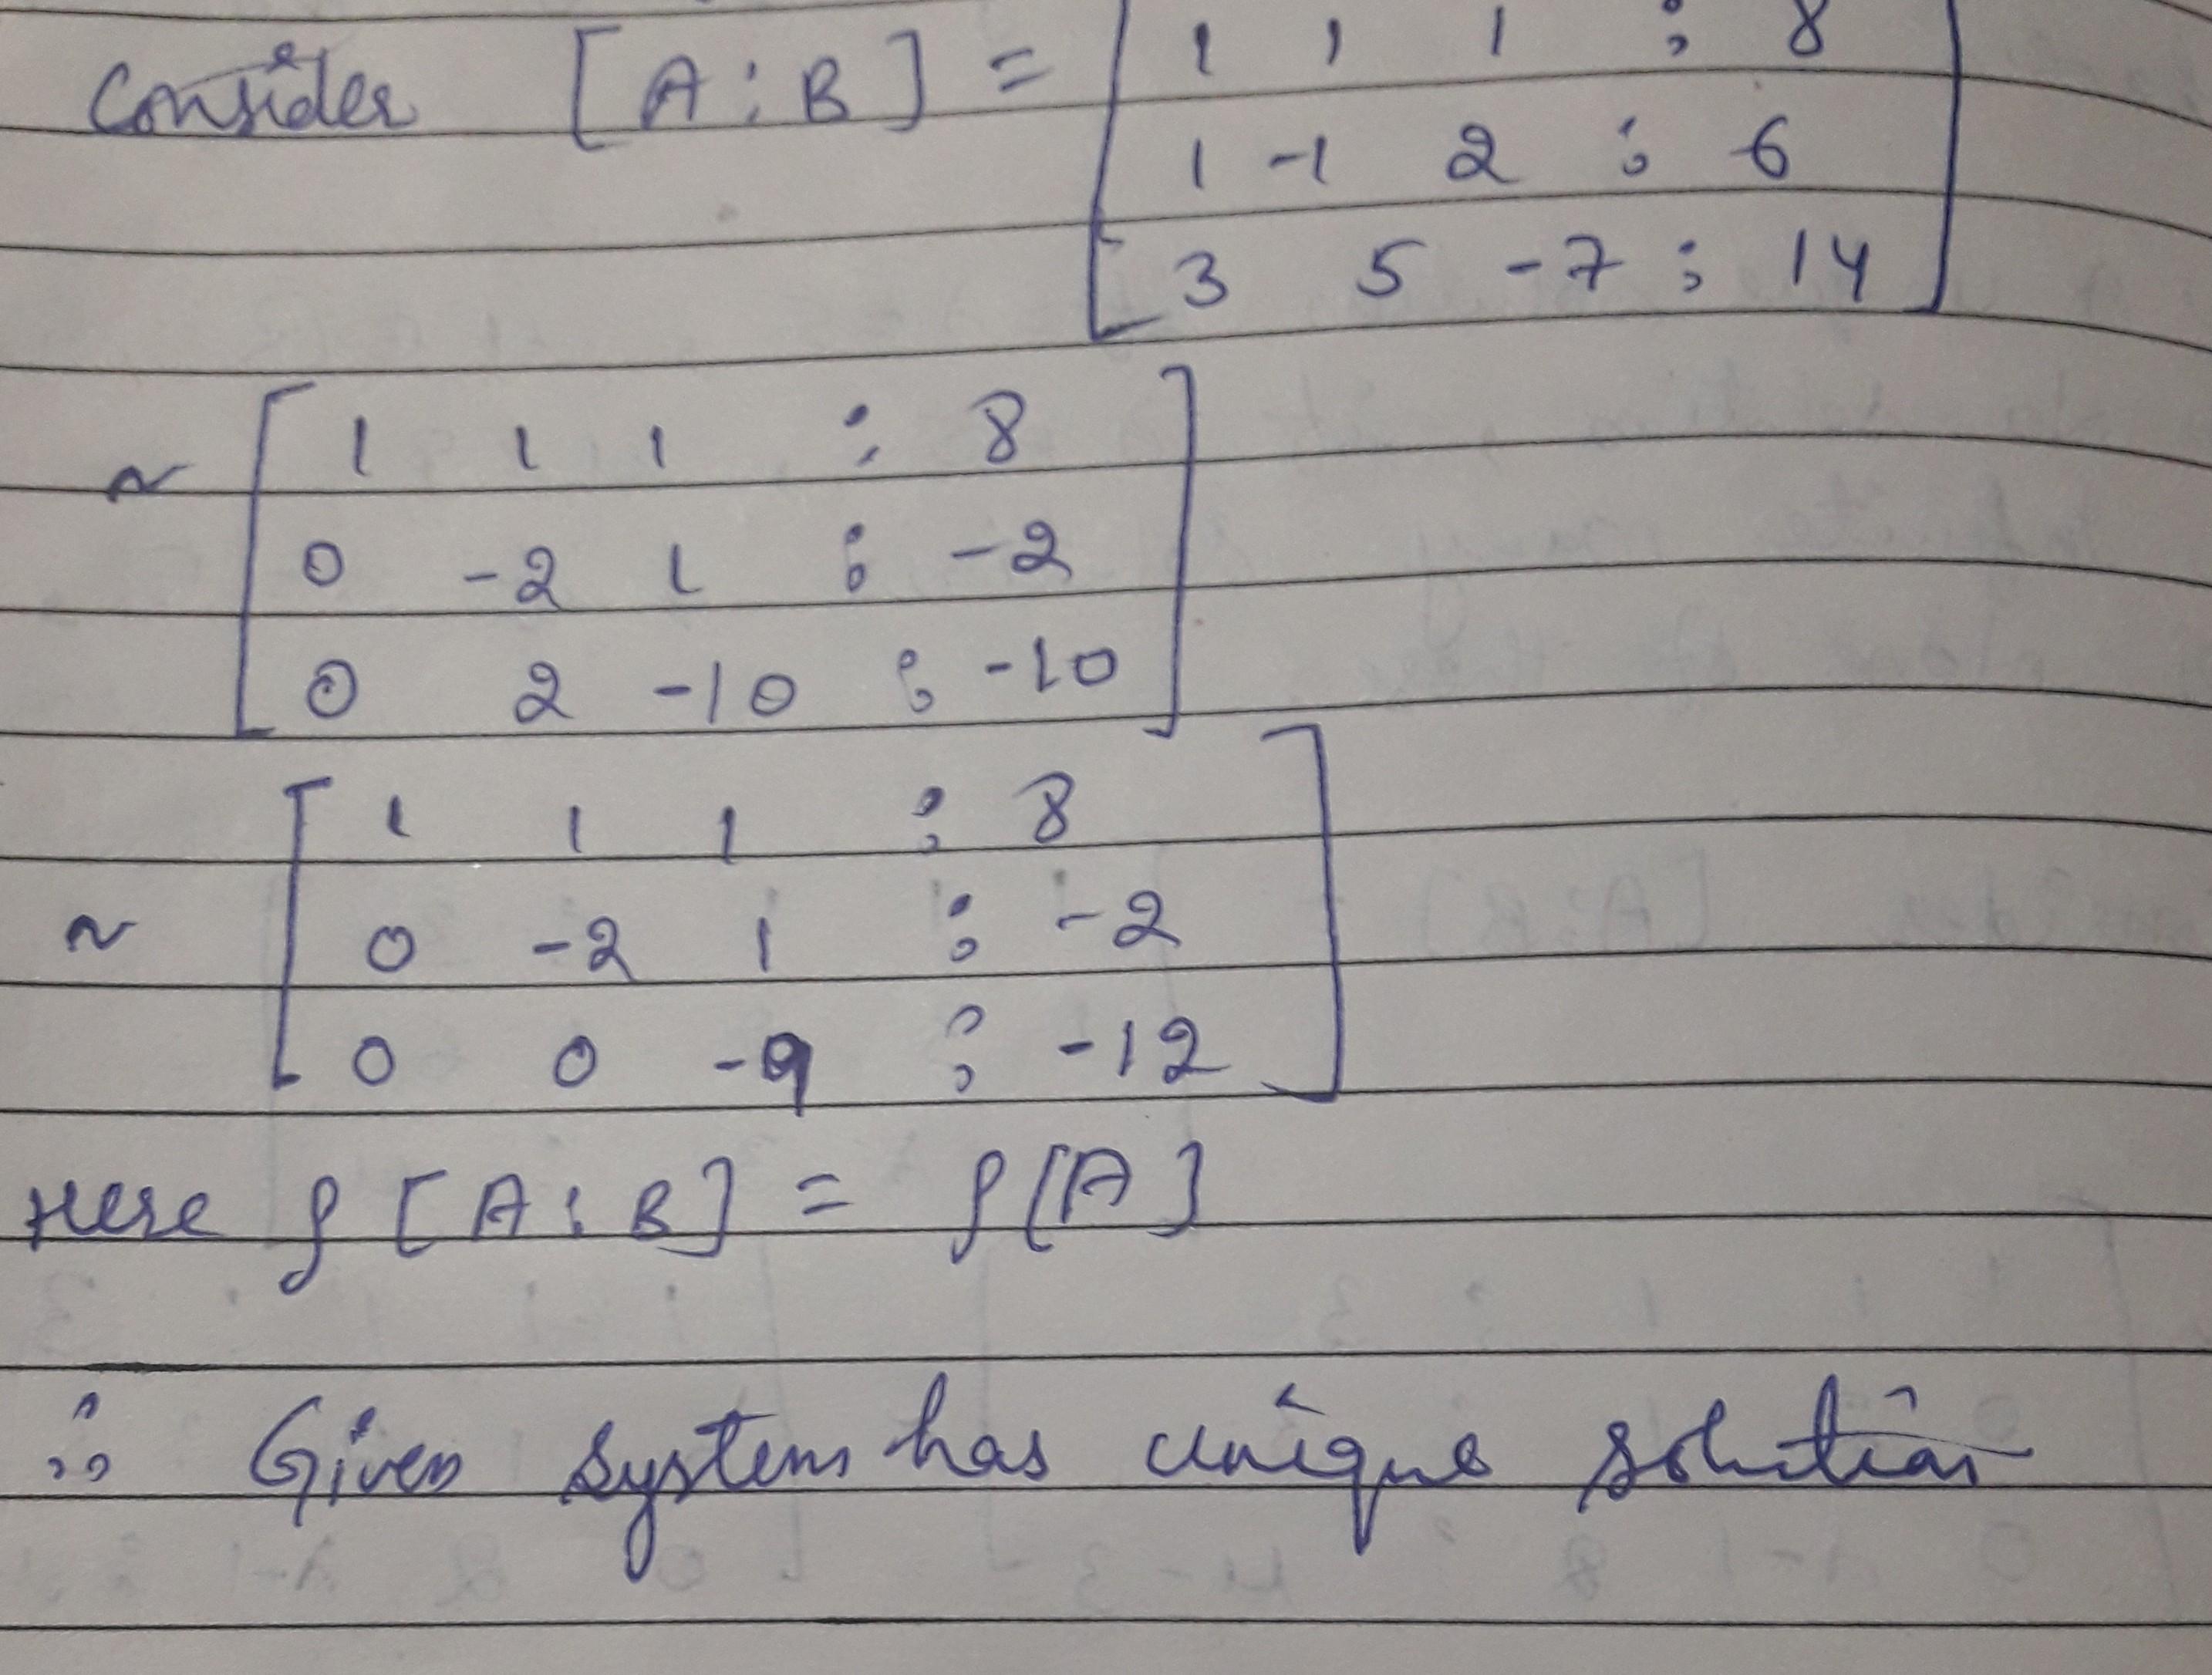 Consider [A : B] = [ 1 1 1 : 8
1 -1 2 : 6
3 5 -7 : 14 ]
~ [ 1 1 1 : 8
0 -2 1 : -2
0 2 -10 : -10 ]
~ [ 1 1 1 : 8
0 -2 1 : -2
0 0 -9 : -12 ]
Here ρ [A : B] = ρ[A]
∴ Given system has unique solution